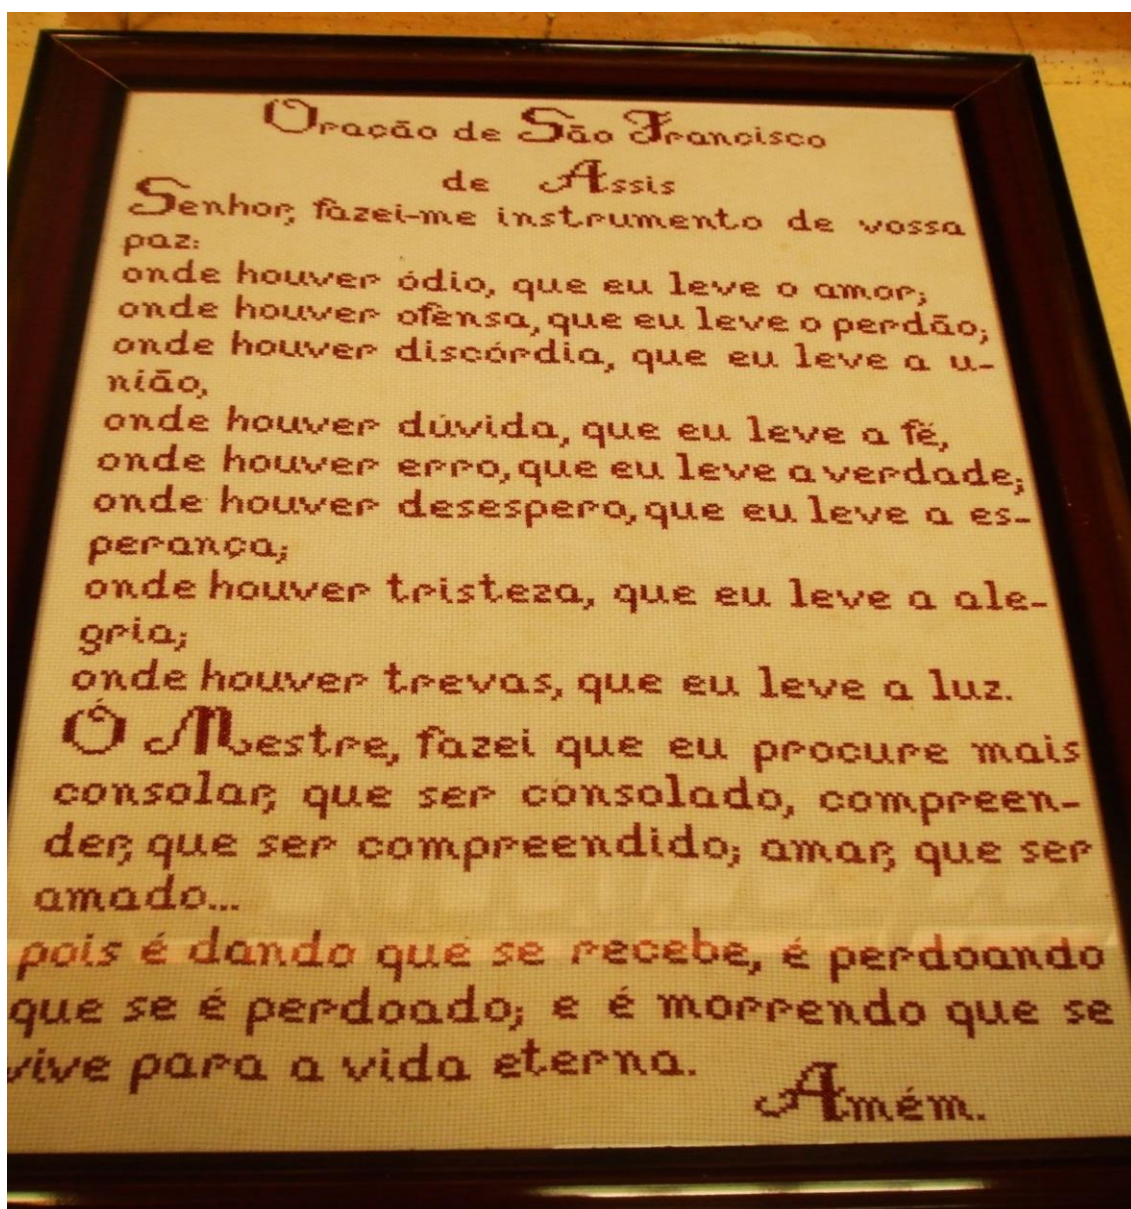 Oração de São Francisco
de Assis
Senhor, fazei-me instrumento de vossa
paz:
onde houver ódio, que eu leve o amor;
onde houver ofensa, que eu leve o perdão;
onde houver discórdia, que eu leve a u-
nião,
onde houver dúvida, que eu leve a fé,
onde houver erro, que eu leve a verdade;
onde houver desespero, que eu leve a es-
perança;
onde houver tristeza, que eu leve a ale-
gria;
onde houver trevas, que eu leve a luz.
Ó Mestre, fazei que eu procure mais
consolar, que ser consolado, compreen-
der, que ser compreendido; amar, que ser
amado...
pois é dando que se recebe, é perdoando
que se é perdoado; e é morrendo que se
vive para a vida eterna.
Amém.